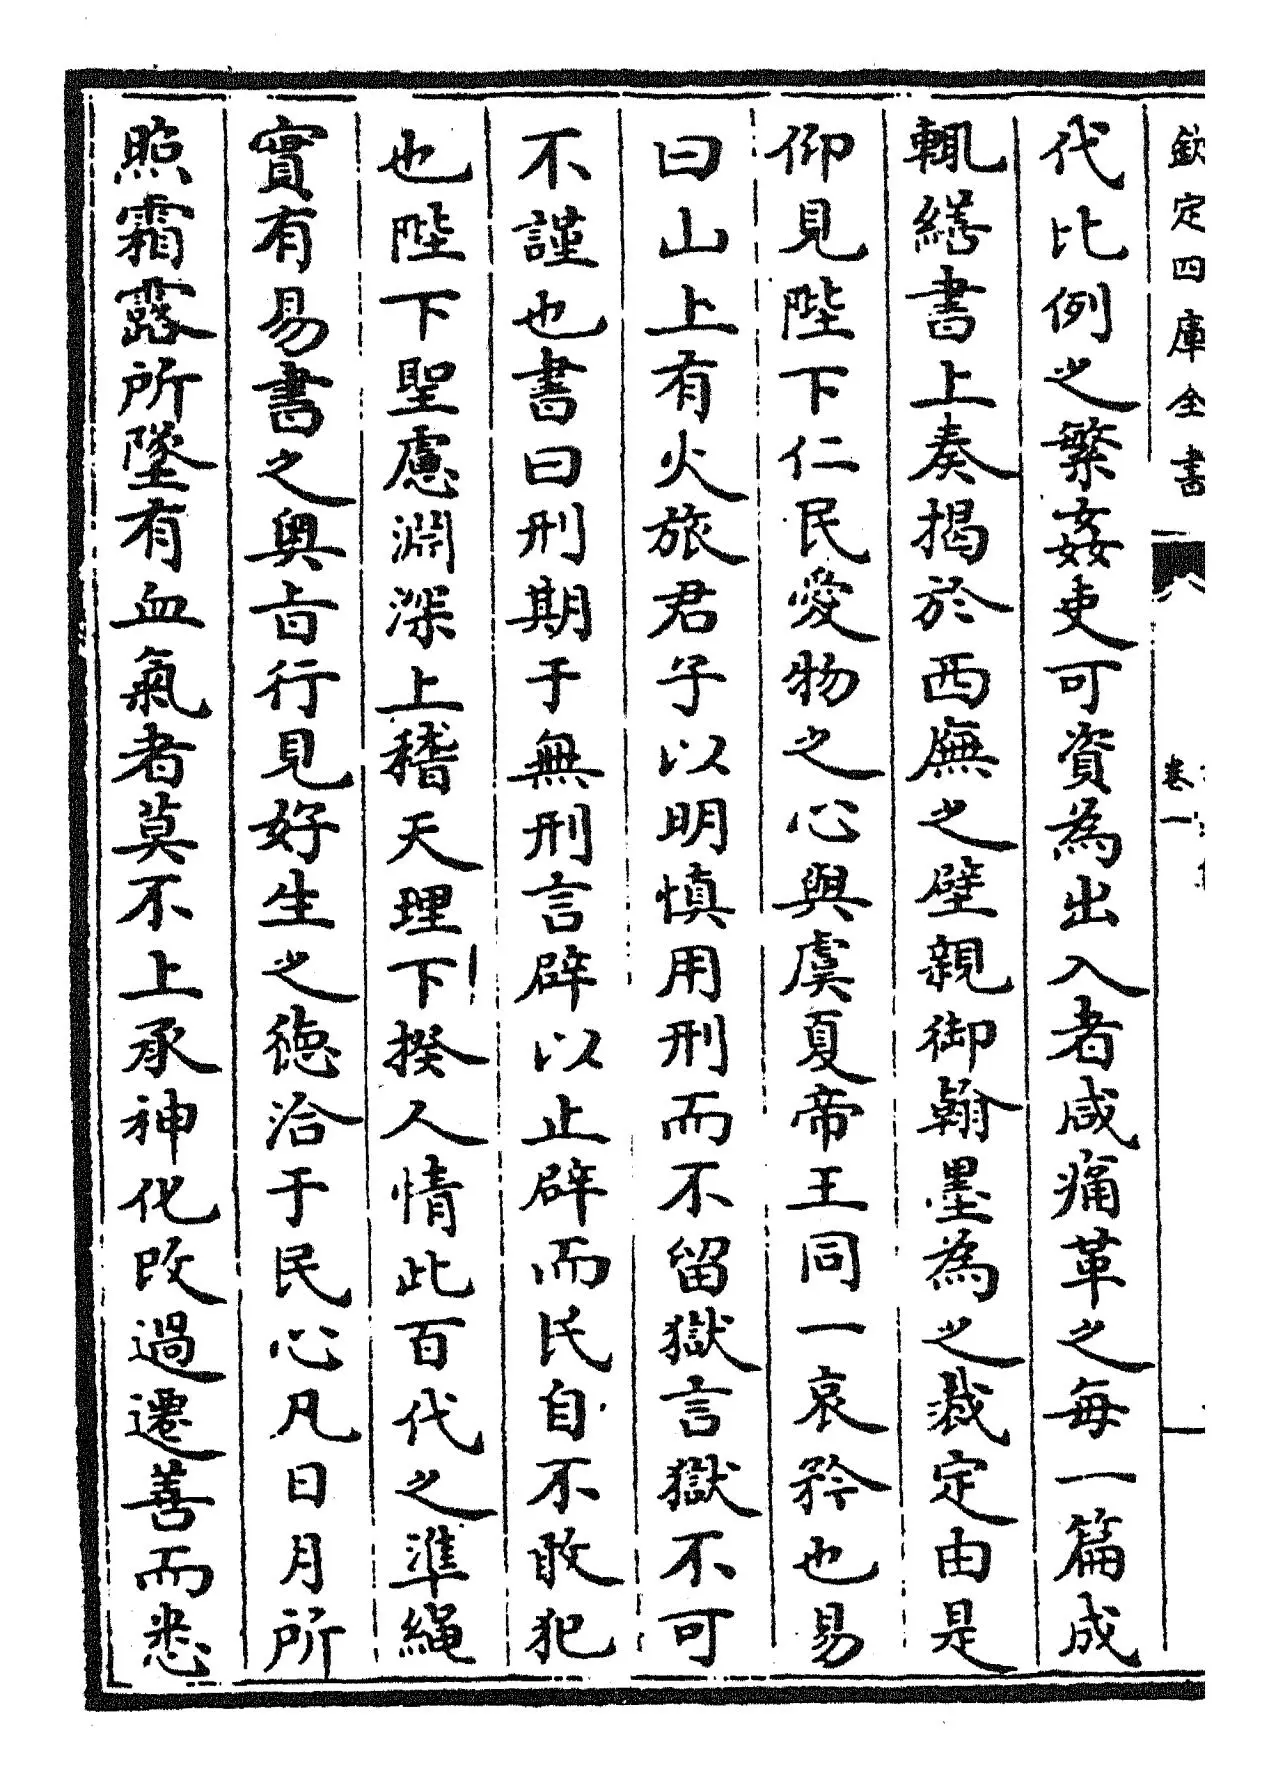 欽定四庫全書
卷一
代比例之繁姦吏可資為出入者咸痛革之每一篇成
輒繕書上奏揭於西廡之壁親御翰墨為之裁定由是
仰見陛下仁民愛物之心與虞夏帝王同一哀矜也易
曰山上有火旅君子以明慎用刑而不留獄言獄不可
不謹也書曰刑期于無刑言辟以止辟而民自不敢犯
也陛下聖慮淵深上稽天理下揆人情此百代之準繩
實有易書之奥旨行見好生之德洽于民心凡日月所
照霜露所墜有血氣者莫不上承神化改過遷善而悉